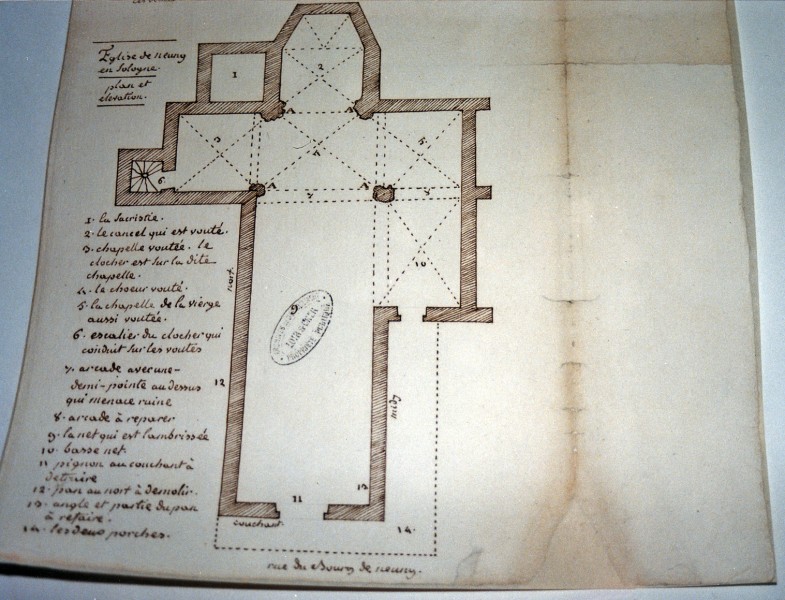 Eglise de neung
en Sologne.
plan et
élévation.
1. la sacristie.
2. le cancel qui est vouté.
3. chapelle voutée. le
clocher est sur la dite
chapelle.
4. le choeur vouté.
5. la chapelle de la vierge
aussi voutée.
6. escalier du clocher qui
conduit sur les voutés
7. arcade avec une
demi-pointe au dessus
qui menace ruine
8. arcade à reparer
9. la nef qui est lambrissée
10. basse nef.
11 pignon au couchant à
detruire
12. pan au nort à demolir.
13. angle et partie du pan
à refaire.
14. les deux porches.
1
2
3
4
5
6
7
9
10
11
12
13
14.
A
A
A
A
nort
midy
couchant
PROPRIÉTÉ PUBLIQUE
rue du Bourg de neung.